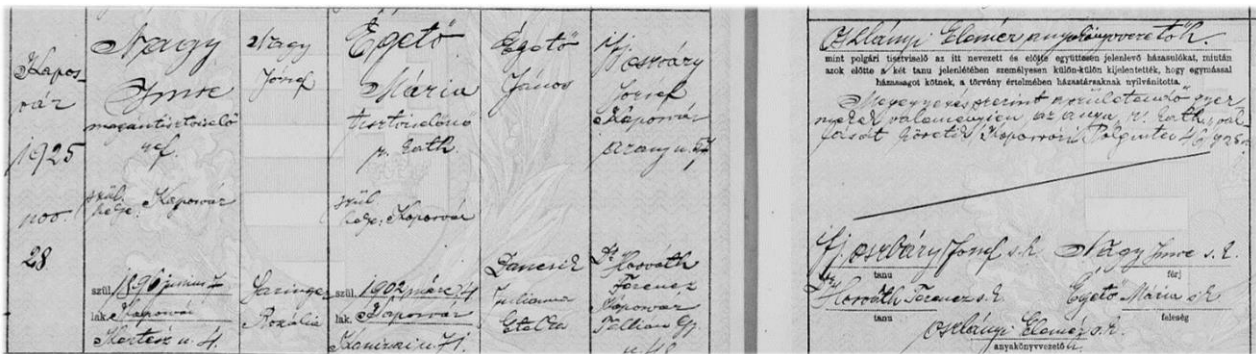 Kapos-
vár
1925
nov.
28.
Nagy
Imre
magántisztviselő
ref.
szül.
helye: Kaposvár
szül. 1896 junius 7
lak. Kaposvár
Kertész u. 4.
Nagy
József
Szaringer
Rozália
Égető
Mária
tisztviselőnő
r. kath.
szül.
helye: Kaposvár
szül. 1902 márc. 4
lak. Kaposvár
Kanizsai u. 71.
Égető
János
Dancsik
Julianna
Etelka
ifj. Oszváry
József
Kaposvár
Arany u.
Dr. Horváth
Ferenc
Kaposvár
Tallián Gy.
u. 48
Oszlányi Elemér anyakönyvvezető h.
mint polgári tisztviselő az itt nevezett és előtte együttesen jelenlevő házasulókat, miután
azok előtte a két tanu jelenlétében személyesen külön-külön kijelentették, hogy egymással
házasságot kötnek, a törvény értelmében házastársaknak nyilvánította.
Megegyezés szerint a születendő gyer
mekek valamennyien az anya, r. kath. val
lását követik. Kaposvári Polgmter
ifj. Oszváry József s. k. Nagy Imre s. k.
tanu férj
Dr. Horváth Ferenc s. k. Égető Mária s. k.
tanu feleség
Oszlányi Elemér s. k.
anyakönyvvezető h.